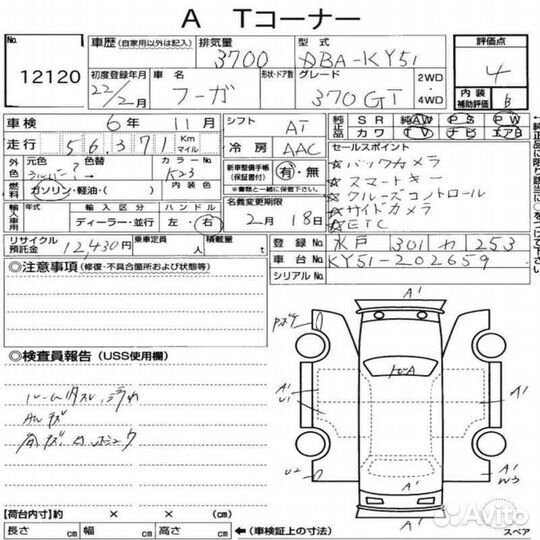 A Tコーナー
No. 12120
車歴 (自家用以外は記入) 排気量 3700 型式 DBA-KY51
評価点 4
内装補助評価 B
初度登録年月 22/2月 車名 フーガ 形状・ドア数 グレード 370GT 2WD・4WD
車検 6年 11月 シフト AT
純正品 SR AW PS PW
カワ TV ナビ エアB
走行 56,371 Km マイル 冷房 AAC
セールスポイント
☆バックカメラ
☆スマートキー
☆クルーズコントロール
☆サイドカメラ
☆ETC
外色 元色 シルバー? 色替 カラーNo. K23
燃料 ガソリン・軽油・( ) 内装色
新車整備手帳(保証書付) 有・無
※書類と一緒に保管下さい。
輸入車用 年式 輸入区分 ハンドル
ディーラー・並行 左・右
名義変更期限 2月 18日
リサイクル預託金 12,430円 乗車定員 人 積載量 t
登録No. 水戸 301 253
車台No. KY51-202659
シリアルNo.
◎注意事項(修復・不具合箇所および状態等)
◎検査員報告(USS使用欄)
A'
トビA
A'
U1
A'
U2
A'
W3
A'
【荷台内寸】約 × × (cm)
長さ cm 幅 cm 高さ cm ←(車検証上の寸法)
スペア
Avito